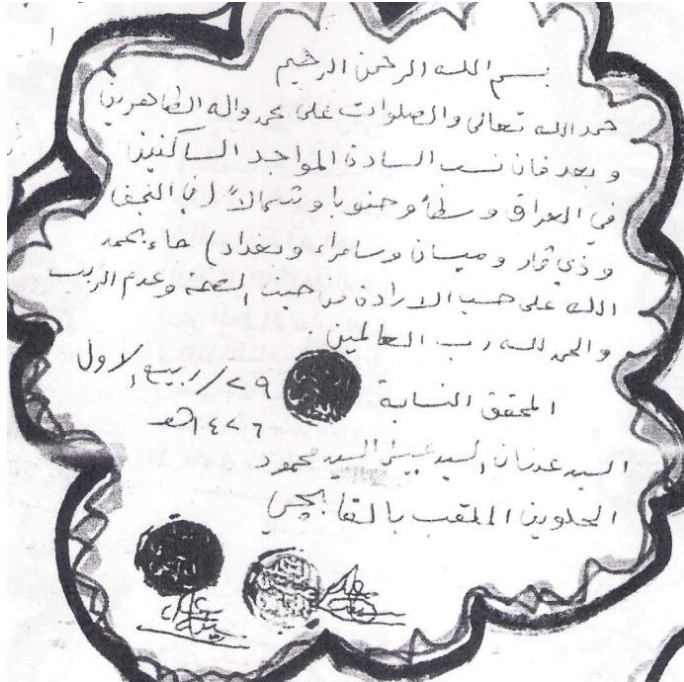 بسم الله الرحمن الرحيم
حمد الله تعالى والصلوات على محمد واله الطاهرين
وبعد فان نسب السادة المواجد الساكنين
في العراق وسطاً وجنوبا وشمالاً (في النجف
وذي قار وميسان وسامراء وبغداد) جاء بحمد
الله على حسب الارادة من حيث الصحة وعدم الريب
والحمد لله رب العالمين
٢٩/ربيع الاول
المحقق النسابة
١٤٢٦هـ
السيد عدنان السيد السيد محمود
الملقب بالقابجي